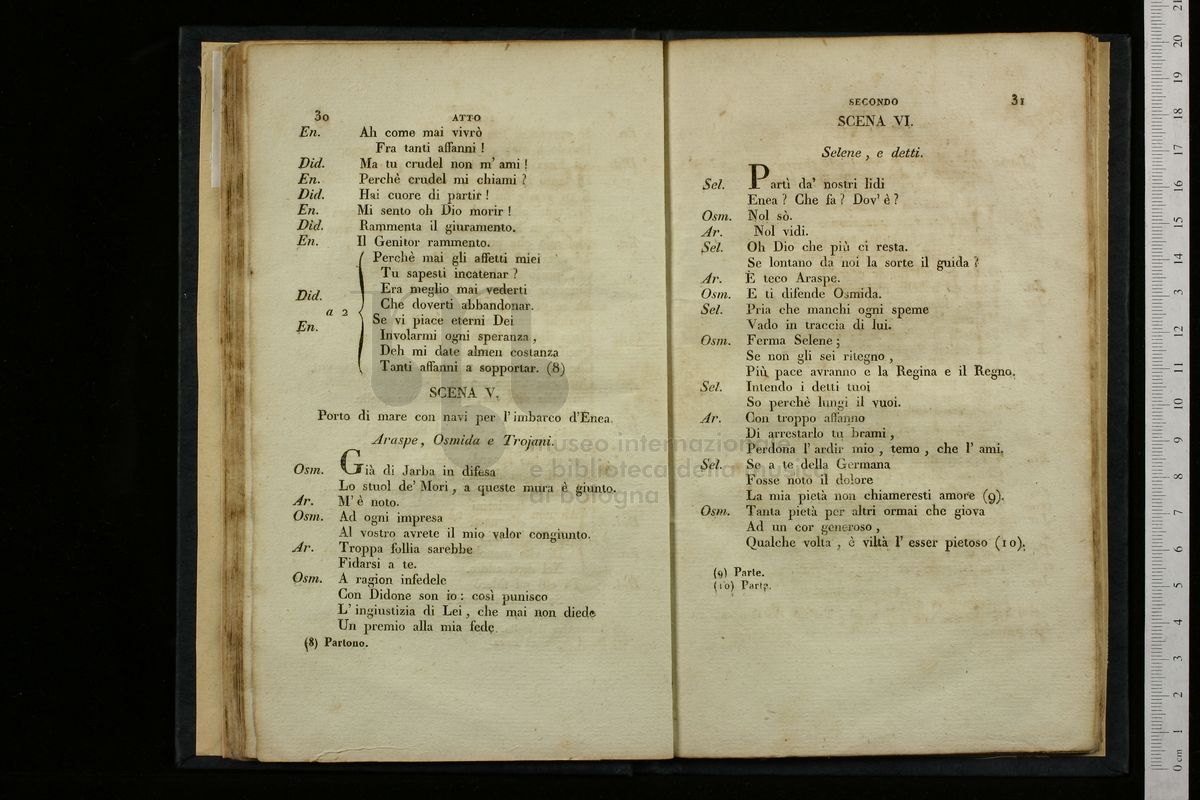 30 ATTO
En. Ah come mai vivrò
Fra tanti affanni !
Did. Ma tu crudel non m' ami !
En. Perchè crudel mi chiami ?
Did. Hai cuore di partir !
En. Mi sento oh Dio morir !
Did. Rammenta il giuramento.
En. Il Genitor rammento.
Perchè mai gli affetti miei
Tu sapesti incatenar ?
Era meglio mai vederti
Did.
Che doverti abbandonar.
a 2
Se vi piace eterni Dei
En.
Involarmi ogni speranza ,
Deh mi date almen costanza
Tanti affanni a sopportar. (8)
SCENA V.
Porto di mare con navi per l' imbarco d'Enea.
Araspe, Osmida e Trojani.
Osm. Già di Jarba in difesa
Lo stuol de' Mori , a queste mura è giunto.
Ar. M' è noto.
Osm. Ad ogni impresa
Al vostro avrete il mio valor congiunto.
Ar. Troppa follia sarebbe
Fidarsi a te.
Osm. A ragion infedele
Con Didone son io : così punisco
L' ingiustizia di Lei , che mai non diede
Un premio alla mia fede.
(8) Partono.
SECONDO 31
SCENA VI.
Selene , e detti.
Sel. Partì da' nostri lidi
Enea ? Che fa ? Dov' è ?
Osm. Nol sò.
Ar. Nol vidi.
Sel. Oh Dio che più ci resta.
Se lontano da noi la sorte il guida ?
Ar. È teco Araspe.
Osm. E ti difende Osmida.
Sel. Pria che manchi ogni speme
Vado in traccia di lui.
Osm. Ferma Selene ;
Se non gli sei ritegno ,
Più pace avranno e la Regina e il Regno.
Sel. Intendo i detti tuoi
So perchè lungi il vuoi.
Ar. Con troppo affanno
Di arrestarlo tu brami ,
Perdona l' ardir mio , temo , che l' ami.
Sel. Se a te della Germana
Fosse noto il dolore
La mia pietà non chiameresti amore (9).
Osm. Tanta pietà per altri ormai che giova
Ad un cor generoso ,
Qualche volta , è viltà l' esser pietoso (10).
(9) Parte.
(10) Parte.
museo internazionale
e biblioteca della musica
di bologna
0 cm 1 2 3 4 5 6 7 8 9 10 11 12 13 14 15 16 17 18 19 20 21